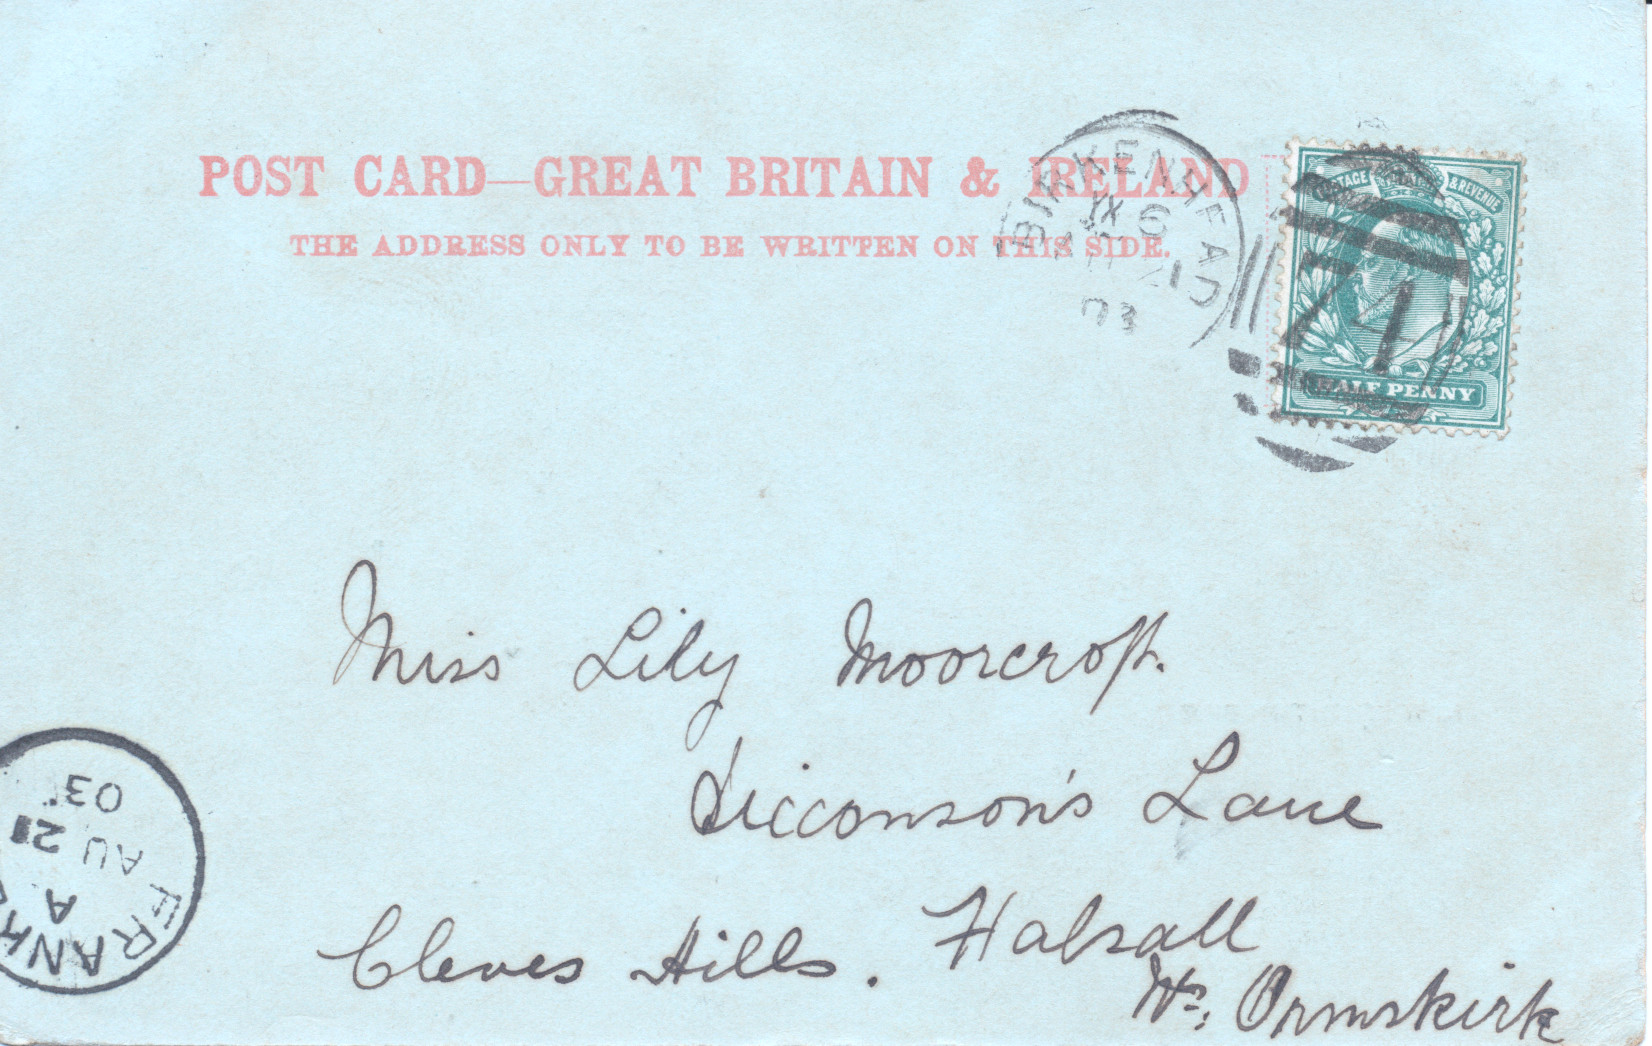 POST CARD—GREAT BRITAIN & IRELAND
THE ADDRESS ONLY TO BE WRITTEN ON THIS SIDE.
BIRKENHEAD
03
POSTAGE & REVENUE
HALF PENNY
Miss Lily Moorcroft.
Dicconson's Lane
Halsall
Cleves Hills.
Nr. Ormskirk
FRANK
A
AU 2
03